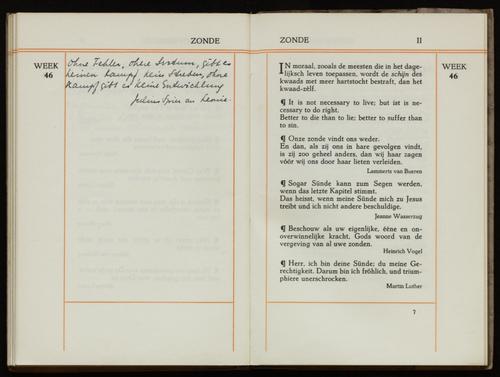 ZONDE
WEEK
46
Ohne Fehler, ohne Irrtum, gibt es
keinen Kampf kein Streben, ohne
Kampf gibt es keine Entwicklung
an Leonie
ZONDE II
WEEK
46
IN moraal, zooals de meesten die in het dage-
lijksch leven toepassen, wordt de schijn des
kwaads met meer hartstocht bestraft, dan het
kwaad-zèlf.
¶ It is not necessary to live; but ist is ne-
cessary to do right.
Better to die than to lie; better to suffer than
to sin.
¶ Onze zonde vindt ons weder.
En dan, als zij ons in hare gevolgen vindt,
is zij zoo geheel anders, dan wij haar zagen
vóór wij ons door haar lieten verleiden.
Lammerts van Bueren
¶ Sogar Sünde kann zum Segen werden,
wenn das letzte Kapitel stimmt.
Das heisst, wenn meine Sünde mich zu Jesus
treibt und ich nicht andere beschuldige.
Jeanne Wasserzug
¶ Beschouw als uw eigenlijke, ééne en on-
overwinnelijke kracht, Gods woord van de
vergeving van al uwe zonden.
Heinrich Vogel
¶ Herr, ich bin deine Sünde; du meine Ge-
rechtigkeit. Darum bin ich fröhlich, und trium-
phiere unerschrocken.
Martin Luther
7